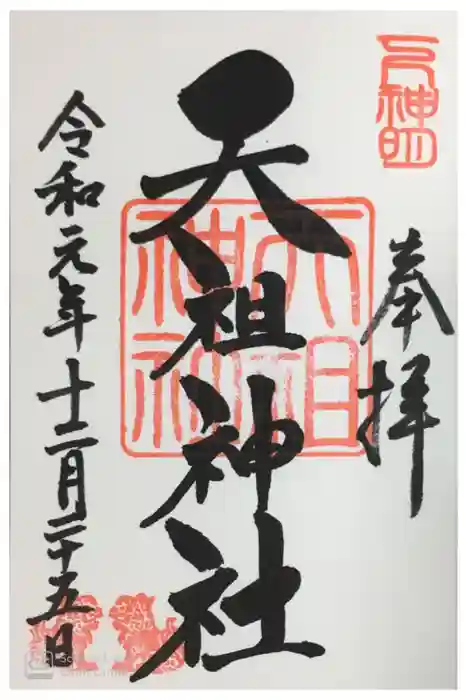 奉拝
天祖神社
天祖神社
令和元年十二月二十五日